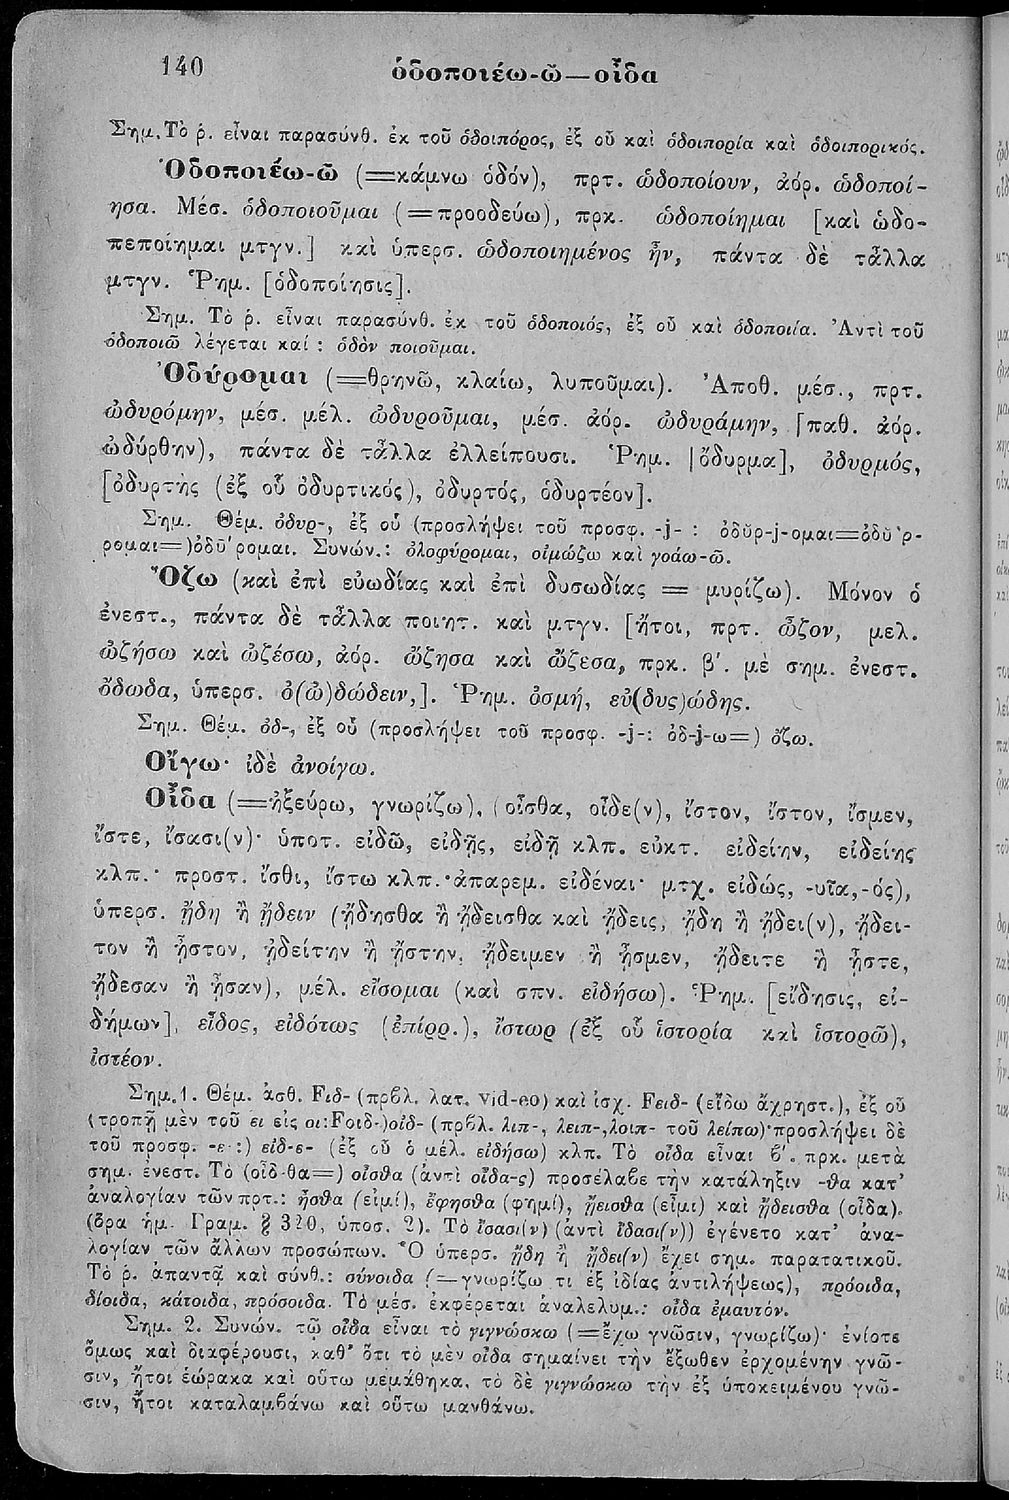 140
ὁδοποιέω-ῶ—οἶδα
Σημ. Τὸ ῥ. εἶναι παρασύνθ. ἐκ τοῦ ὁδοιπόρος, ἐξ οὗ καὶ ὁδοιπορία καὶ ὁδοιπορικός.
Ὁδοποιέω-ῶ (=κάμνω ὁδόν), πρτ. ὡδοποίουν, ἀόρ. ὡδοποί-
ησα. Μέσ. ὁδοποιοῦμαι (=προοδεύω), πρκ. ὡδοποίημαι [καὶ ὡδο-
πεποίημαι μτγν.] καὶ ὑπερσ. ὡδοποιημένος ἦν, πάντα δὲ τἆλλα
μτγν. Ῥημ. [ὁδοποίησις].
Σημ. Τὸ ῥ. εἶναι παρασύνθ. ἐκ τοῦ ὁδοποιός, ἐξ οὗ καὶ ὁδοποιία. Ἀντὶ τοῦ
ὁδοποιῶ λέγεται καί : ὁδὸν ποιοῦμαι.
Ὀδύρομαι (=θρηνῶ, κλαίω, λυποῦμαι). Ἀποθ. μέσ., πρτ.
ὠδυρόμην, μέσ. μέλ. ὠδυροῦμαι, μέσ. ἀόρ. ὠδυράμην, [παθ. ἀόρ.
ὠδύρθην), πάντα δὲ τἆλλα ἐλλείπουσι. Ῥημ. [ὄδυρμα], ὀδυρμός,
[ὀδυρτης (ἐξ οὗ ὀδυρτικός), ὀδυρτός, ὀδυρτέον].
Σημ. Θέμ. ὀδυρ-, ἐξ οὗ (προσλήψει τοῦ προσφ. -j- : ὀδῠρ-j-ομαι=ὀδῠ΄ρ-
ρομαι=)ὀδῡ΄ρομαι. Συνών.: ὀλοφύρομαι, οἰμώζω καὶ γοάω-ῶ.
Ὄζω (καὶ ἐπὶ εὐωδίας καὶ ἐπὶ δυσωδίας = μυρίζω). Μόνον ὁ
ἐνεστ., πάντα δὲ τἆλλα ποιητ. καὶ μτγν. [ἤτοι, πρτ. ὦζον, μελ.
ὠζήσω καὶ ὠζέσω, ἀόρ. ὤζησα καὶ ὤζεσα, πρκ. β΄. μὲ σημ. ἐνεστ.
ὄδωδα, ὑπερσ. ὀ(ὠ)δώδειν,]. Ῥημ. ὀσμή, εὐ(δυς)ώδης.
Σημ. Θέμ. ὀδ-, ἐξ οὗ (προσλήψει τοῦ προσφ. -j-: ὀδ-j-ω=) ὄζω.
Οἴγω· ἰδὲ ἀνοίγω.
Οἶδα (=ἠξεύρω, γνωρίζω), (οἶσθα, οἶδε(ν), ἴστον, ἴστον, ἴσμεν,
ἴστε, ἴσασι(ν)· ὑποτ. εἰδῶ, εἰδῇς, εἰδῇ κλπ. εὐκτ. εἰδείην, εἰδείης
κλπ.· προστ. ἴσθι, ἴστω κλπ.·ἀπαρεμ. εἰδέναι· μτχ. εἰδώς, -υῖα,-ός),
ὑπερσ. ᾔδη ἢ ᾔδειν (ᾔδησθα ἢ ᾔδεισθα καὶ ᾔδεις, ᾔδη ἢ ᾔδει(ν), ᾔδει-
τον ἢ ᾖστον, ᾐδείτην ἢ ᾔστην, ᾔδειμεν ἢ ᾖσμεν, ᾔδειτε ἢ ᾖστε,
ᾔδεσαν ἢ ᾖσαν), μέλ. εἴσομαι (καὶ σπν. εἰδήσω). Ῥημ. [εἴδησις, εἰ-
δήμων], εἶδος, εἰδότως (ἐπίρρ.), ἵστωρ (ἐξ οὗ ἱστορία καὶ ἱστορῶ),
ἰστέον.
Σημ.1. Θέμ. ἀσθ. Fιδ- (πρβλ. λατ. vid-eo) καὶ ἰσχ. Fειδ- (εἴδω ἄχρηστ.), ἐξ οὗ
(τροπῇ μὲν τοῦ ει εἰς οι:Fοιδ-)οἰδ- (πρβλ. λιπ-, λειπ-,λοιπ- τοῦ λείπω)·προσλήψει δὲ
τοῦ προσφ. -ε-:) εἰδ-ε- (ἐξ οὗ ὁ μέλ. εἰδήσω) κλπ. Τὸ οἶδα εἶναι β΄. πρκ. μετὰ
σημ. ἐνεστ. Τὸ (οἶδ-θα=) οἶσθα (ἀντὶ οἶδα-ς) προσέλαβε τὴν κατάληξιν -θα κατ'
ἀναλογίαν τῶν πρτ.: ἦσθα (εἰμί), ἔφησθα (φημί), ᾔεισθα (εἶμι) καὶ ᾔδεισθα (οἶδα).
(ὅρα ἡμ. Γραμ. § 320, ὑποσ. 2). Τὸ ἴσασι(ν) (ἀντὶ ἴδασι(ν)) ἐγένετο κατ' ἀνα-
λογίαν τῶν ἄλλων προσώπων. Ὁ ὑπερσ. ᾔδη ἢ ᾔδει(ν) ἔχει σημ. παρατατικοῦ.
Τὸ ῥ. ἀπαντᾷ καὶ σύνθ.: σύνοιδα (=γνωρίζω τι ἐξ ἰδίας ἀντιλήψεως), πρόοιδα,
δίοιδα, κάτοιδα, πρόσοιδα. Τὸ μέσ. ἐκφέρεται ἀναλελυμ.: οἶδα ἐμαυτόν.
Σημ. 2. Συνών. τῷ οἶδα εἶναι τὸ γιγνώσκω (=ἔχω γνῶσιν, γνωρίζω)· ἐνίοτε
ὅμως καὶ διαφέρουσι, καθ' ὅτι τὸ μὲν οἶδα σημαίνει τὴν ἔξωθεν ἐρχομένην γνῶ-
σιν, ἤτοι ἑώρακα καὶ οὕτω μεμάθηκα, τὸ δὲ γιγνώσκω τὴν ἐξ ὑποκειμένου γνῶ-
σιν, ἤτοι καταλαμβάνω καὶ οὕτω μανθάνω.